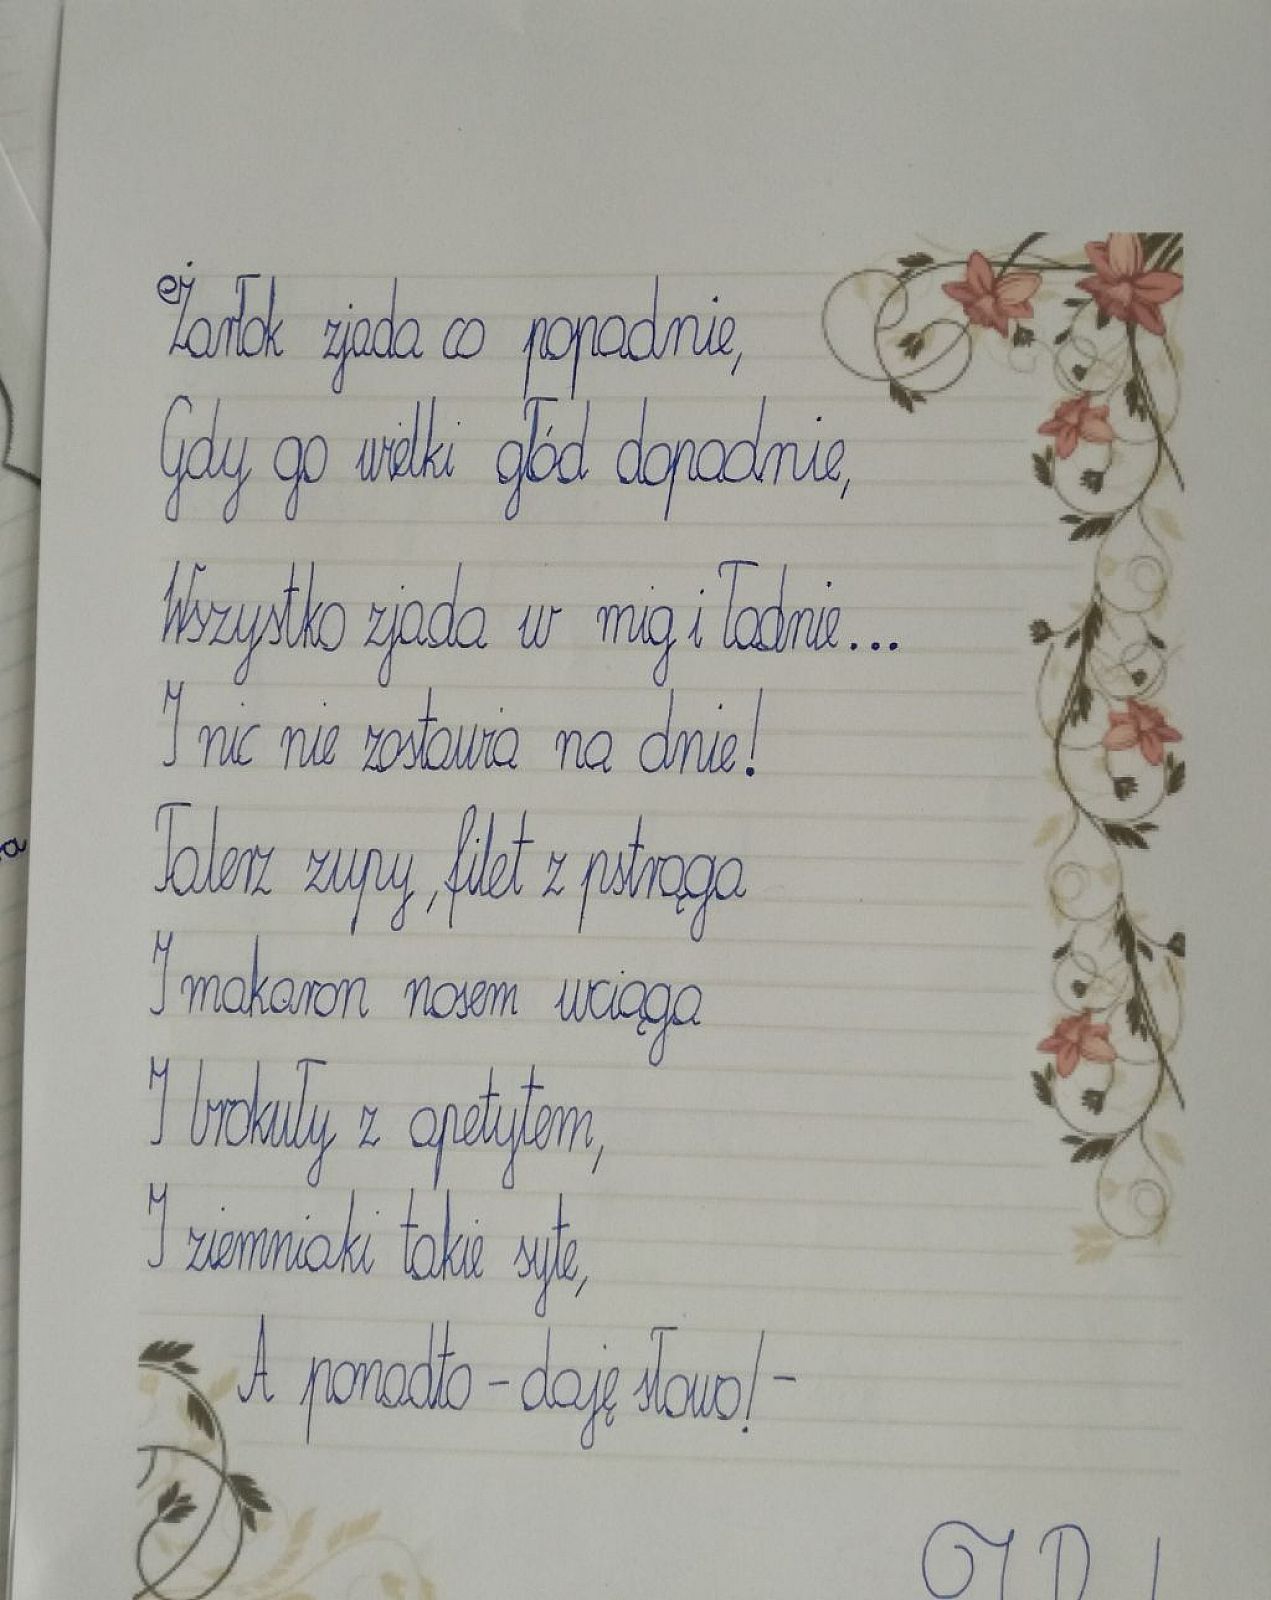 Żarłok zjada co popadnie,
Gdy go wielki głód dopadnie,
Wszystko zjada w mig i ładnie...
I nic nie zostawia na dnie!
Talerz zupy, filet z pstrąga
I makaron nosem wciąga
I brokuły z apetytem,
I ziemniaki takie syte,
A ponadto – daję słowo! –